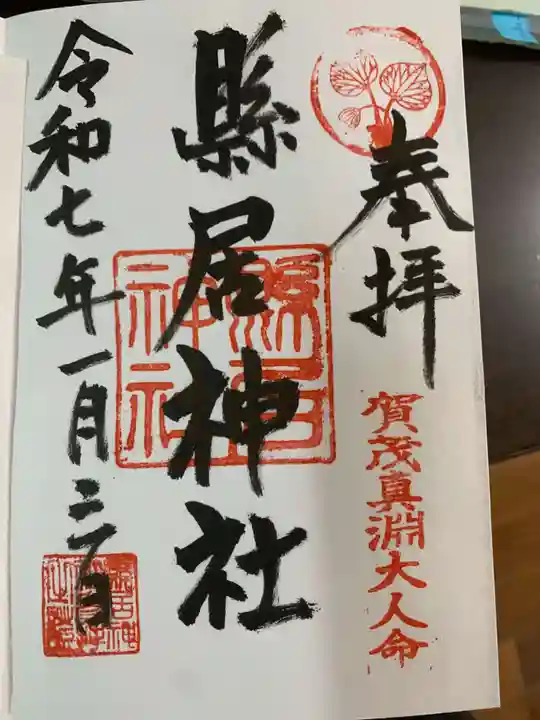 奉拝
賀茂真淵大人命
縣居神社
縣居神社
令和七年一月二日